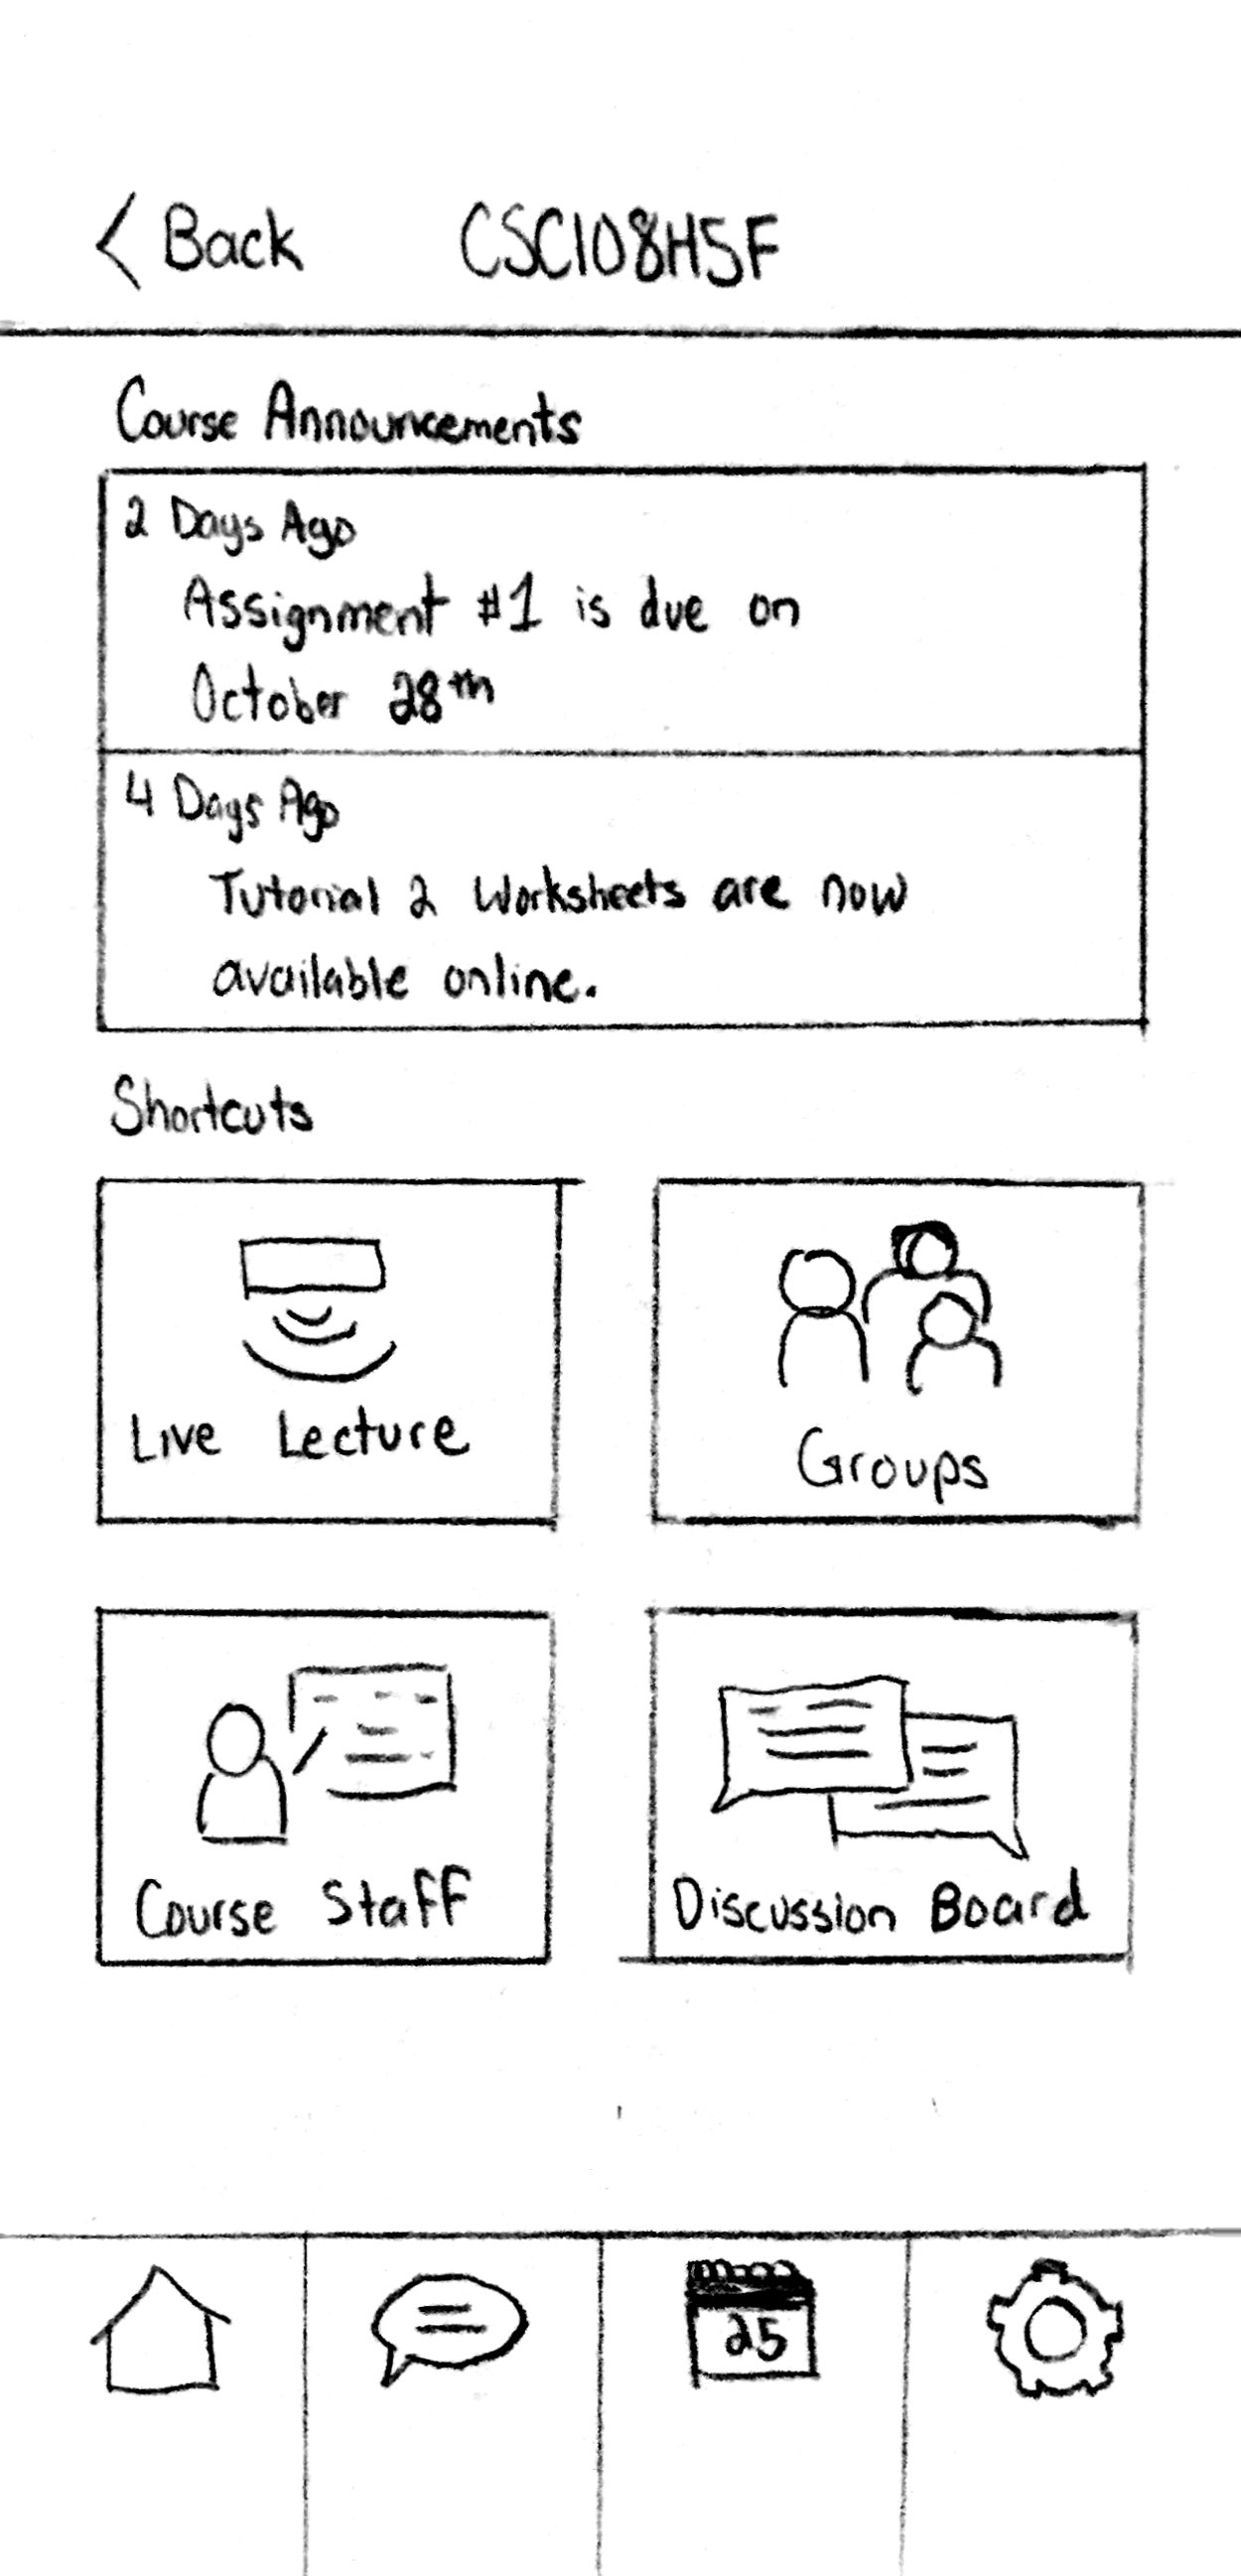 < Back CSC108H5F
Course Announcements
2 Days Ago
Assignment #1 is due on
October 28th
4 Days Ago
Tutorial 2 Worksheets are now
available online.
Shortcuts
Live Lecture
Groups
Course Staff
Discussion Board
25